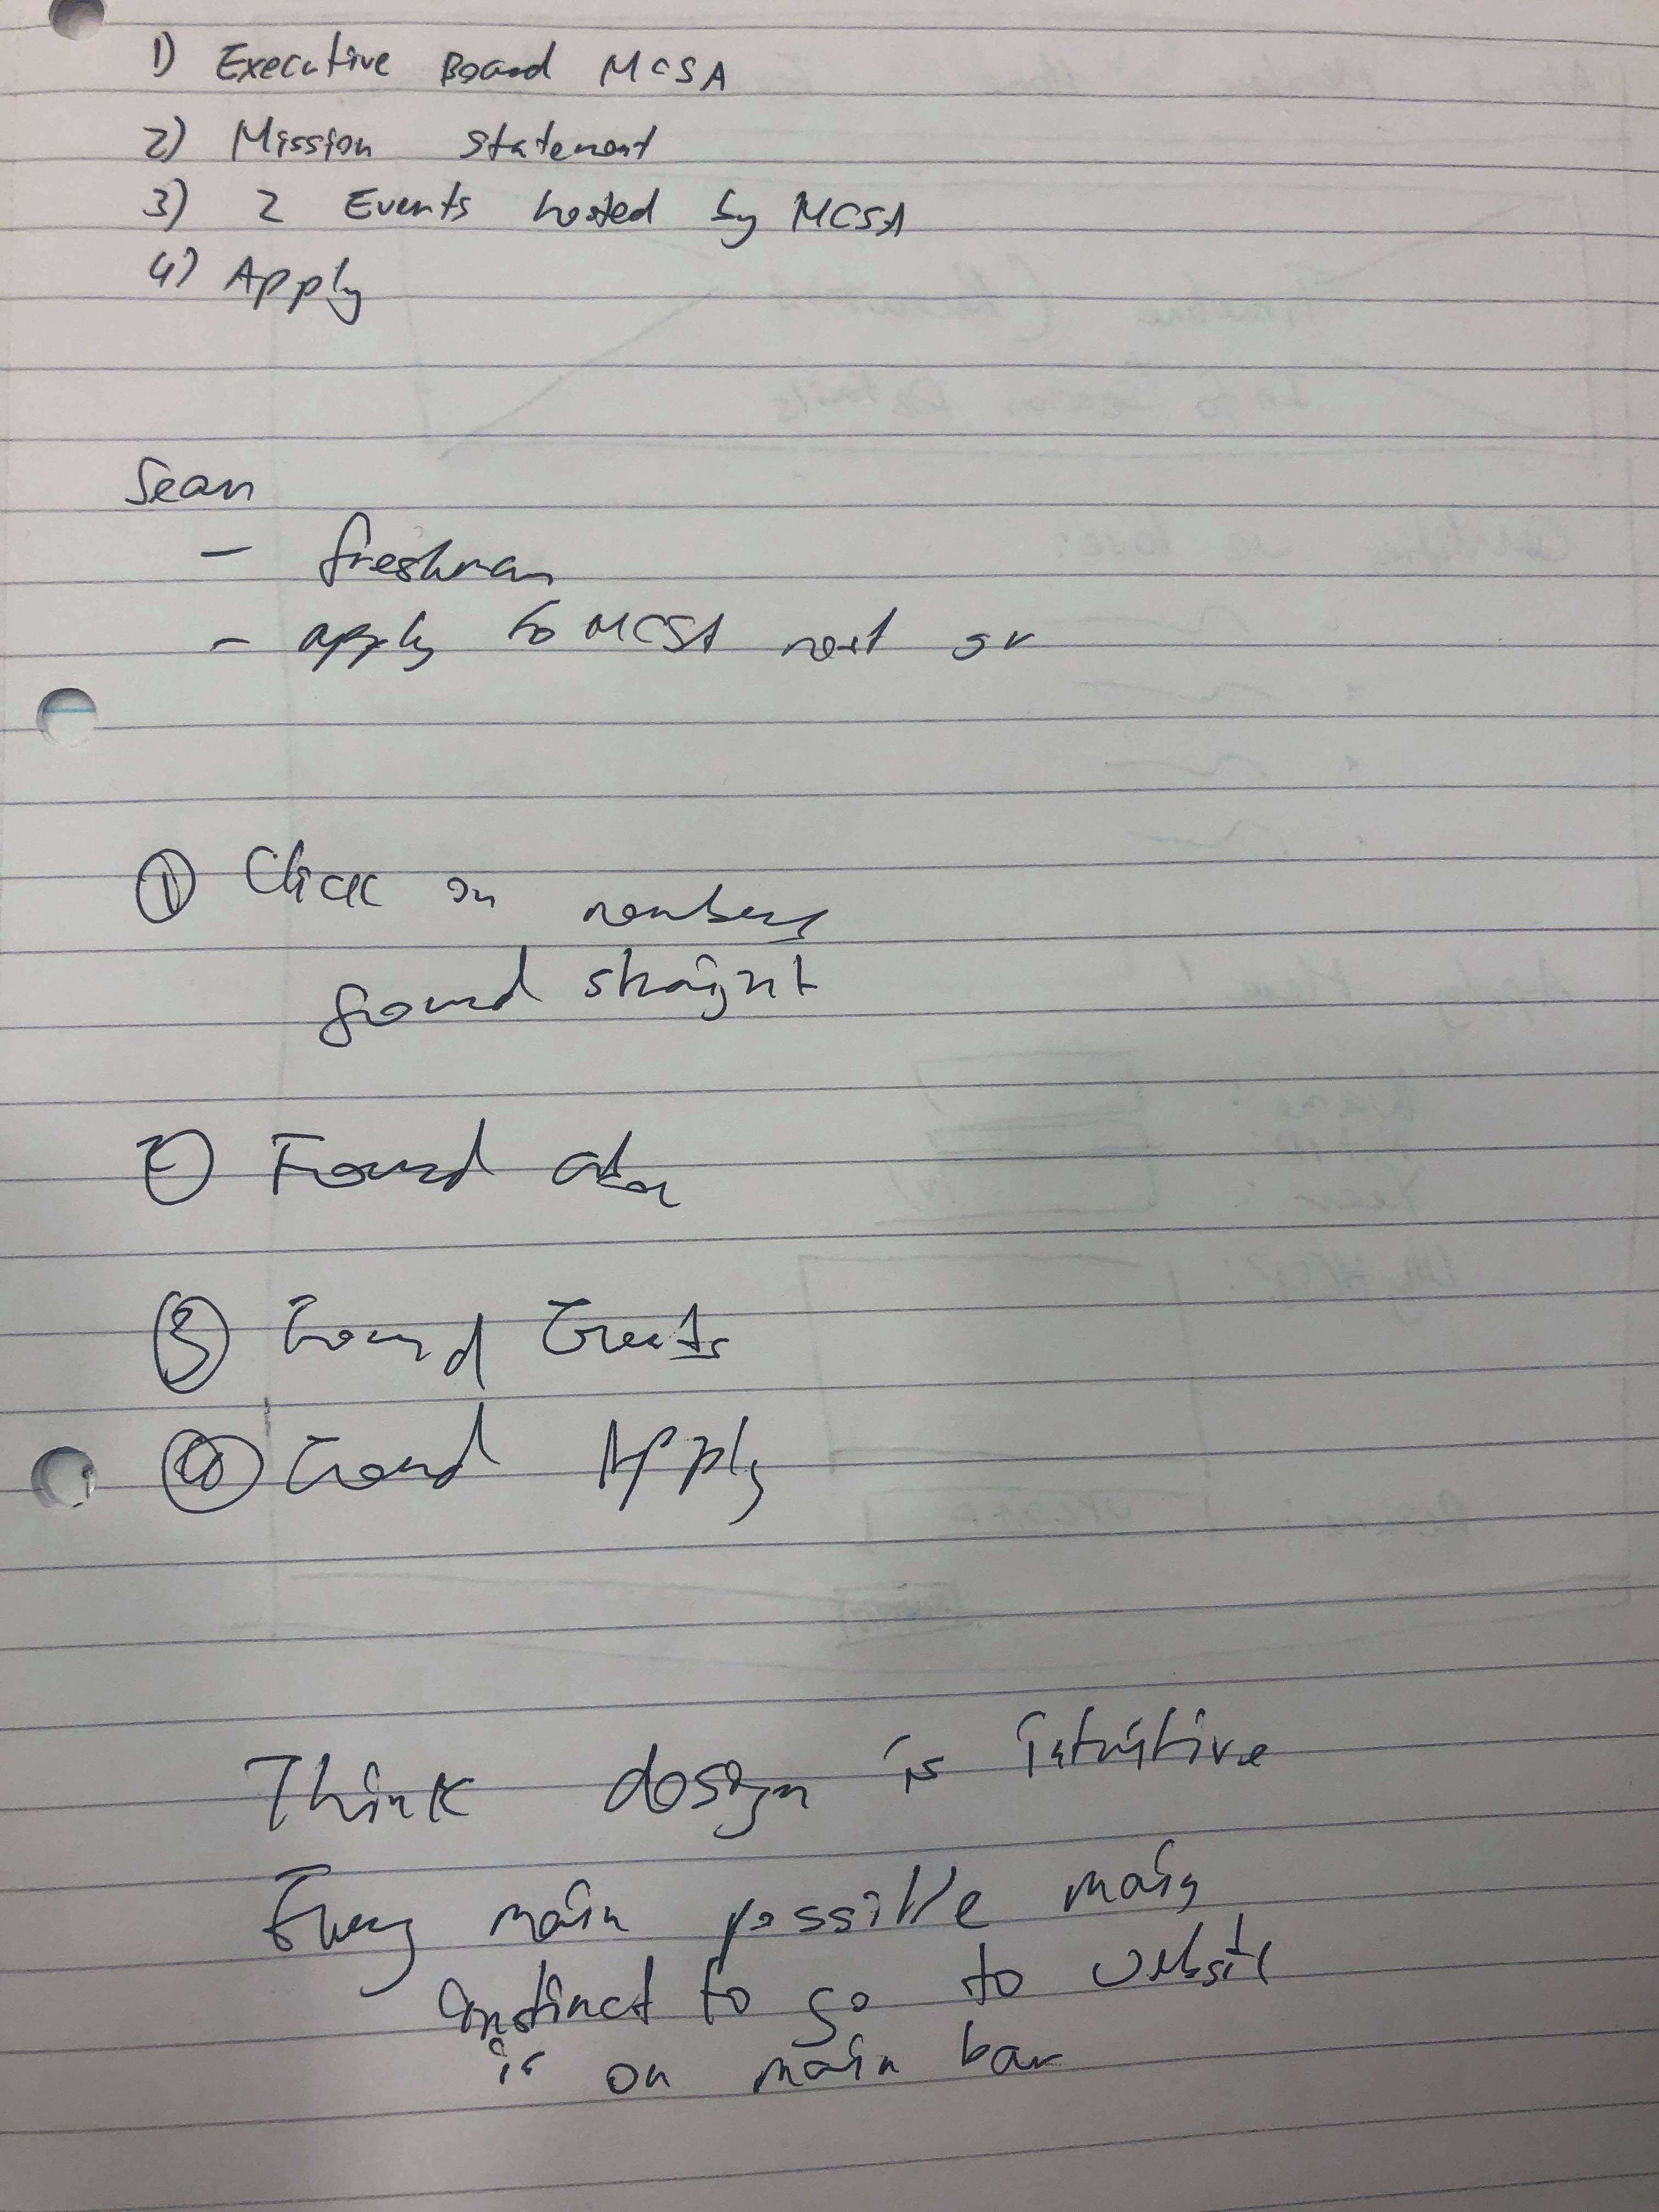 1) Executive Board MCSA
2) Mission Statement
3) 2 Events hosted by MCSA
4) Apply
Sean
- freshman
- apply to MCSA next
① Click on members
found straight
② Found
③ Found Events
④ Found Apply
Think design is intuitive
Every main possible main
instinct to go to website
is on main bar